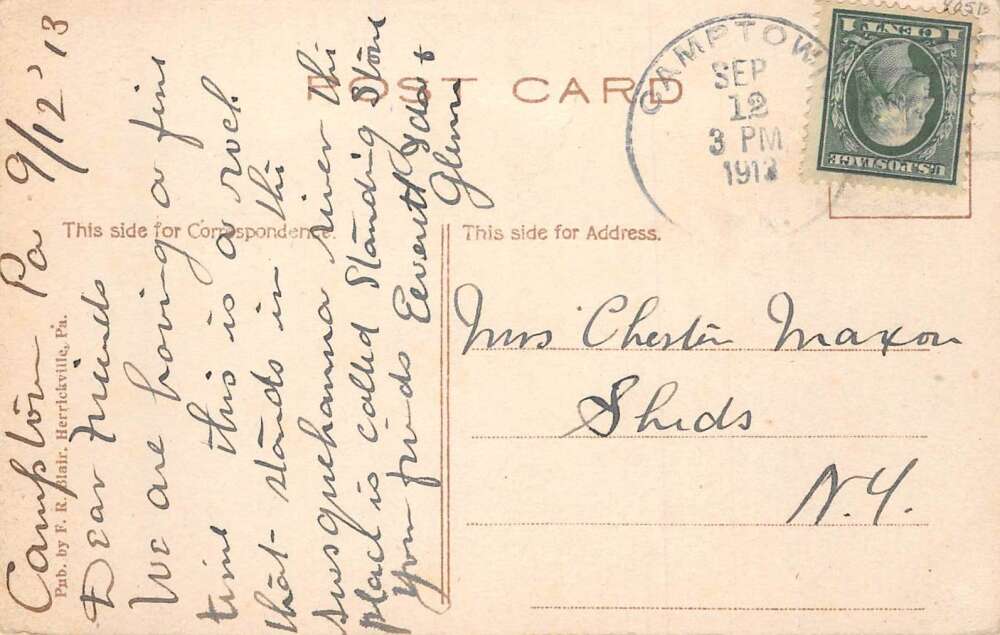 POST CARD
This side for Correspondence.
This side for Address.
Pub. by F. R. Blair, Herrickville, Pa.
Campton Pa 9/12 '13
Dear Friends
We are having a fine
time this is a rock
that stands in the
Susquehanna river this
place is called Standing Stone
Your friends Eevertt Ida &
Glenn
CAMPTOWN
SEP
12
3 PM
1913
1 CENT 1
U.S. POSTAGE
Mrs Chester Maxon
Sheds
N.Y.